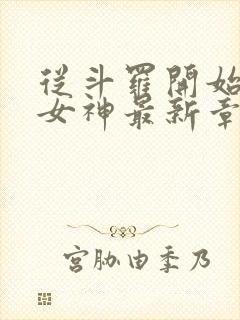 從斗羅開始
女神最新章
宮胁由季乃